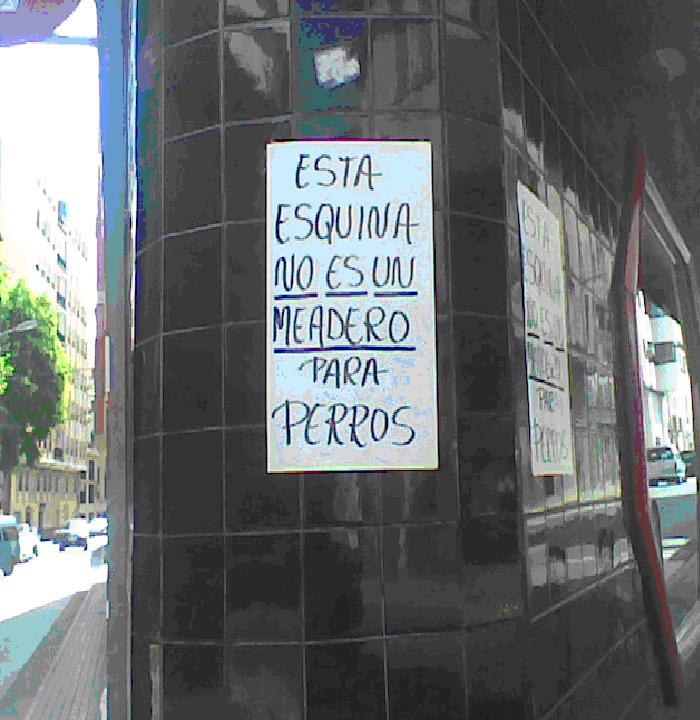 ESTA
ESQUINA
NO ES UN
MEADERO
PARA
PERROS
ESTA
ESQUINA
NO ES UN
MEADERO
PARA
PERROS